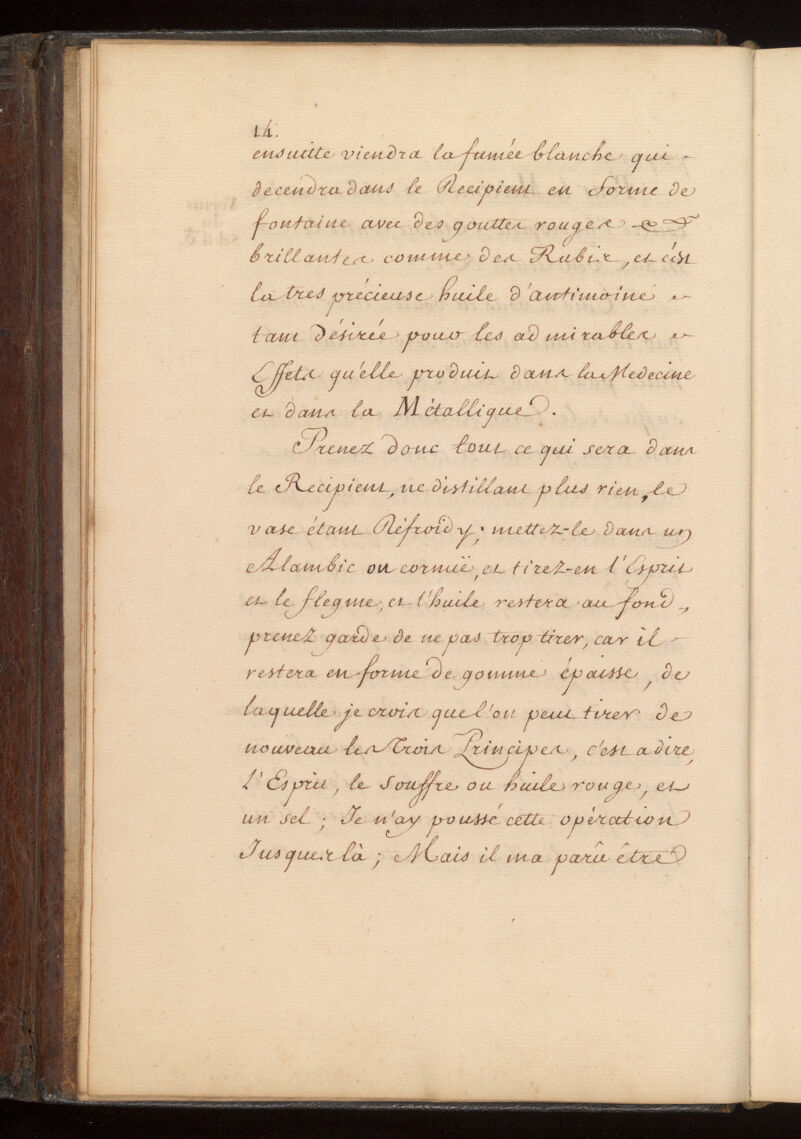 14.
ensuitte viendra la fumée blanche qui
decendra dans le Recipient en forme de
fontaine avec des gouttes rouges &
brillantes comme des Rubis, et c'est
la tres précieuse huile d'antimoine
tant désirée pour les admirables
Effets qu'elle produit dans la Medecine
et dans la Métallique.
Prenez donc tout ce qui sera dans
le Recipient, ne distillant plus rien, le
vase étant Réfroidy; mettez-le dans un
Alambic ou cornuë, et tirez-en l'Esprit
et le flegme, et l'huile restera au fond,
prenez garde de ne pas trop tirer, car il
restera en forme de gomme épaisse, de
laquelle je crois que l'on peut tirer de
nouveau les Trois Principes, c'est a dire,
l'Esprit, le Souffre ou huile rouge, et
un sel; Je n'ay poussé cette opération
Jusques là; Mais il m'a parû être